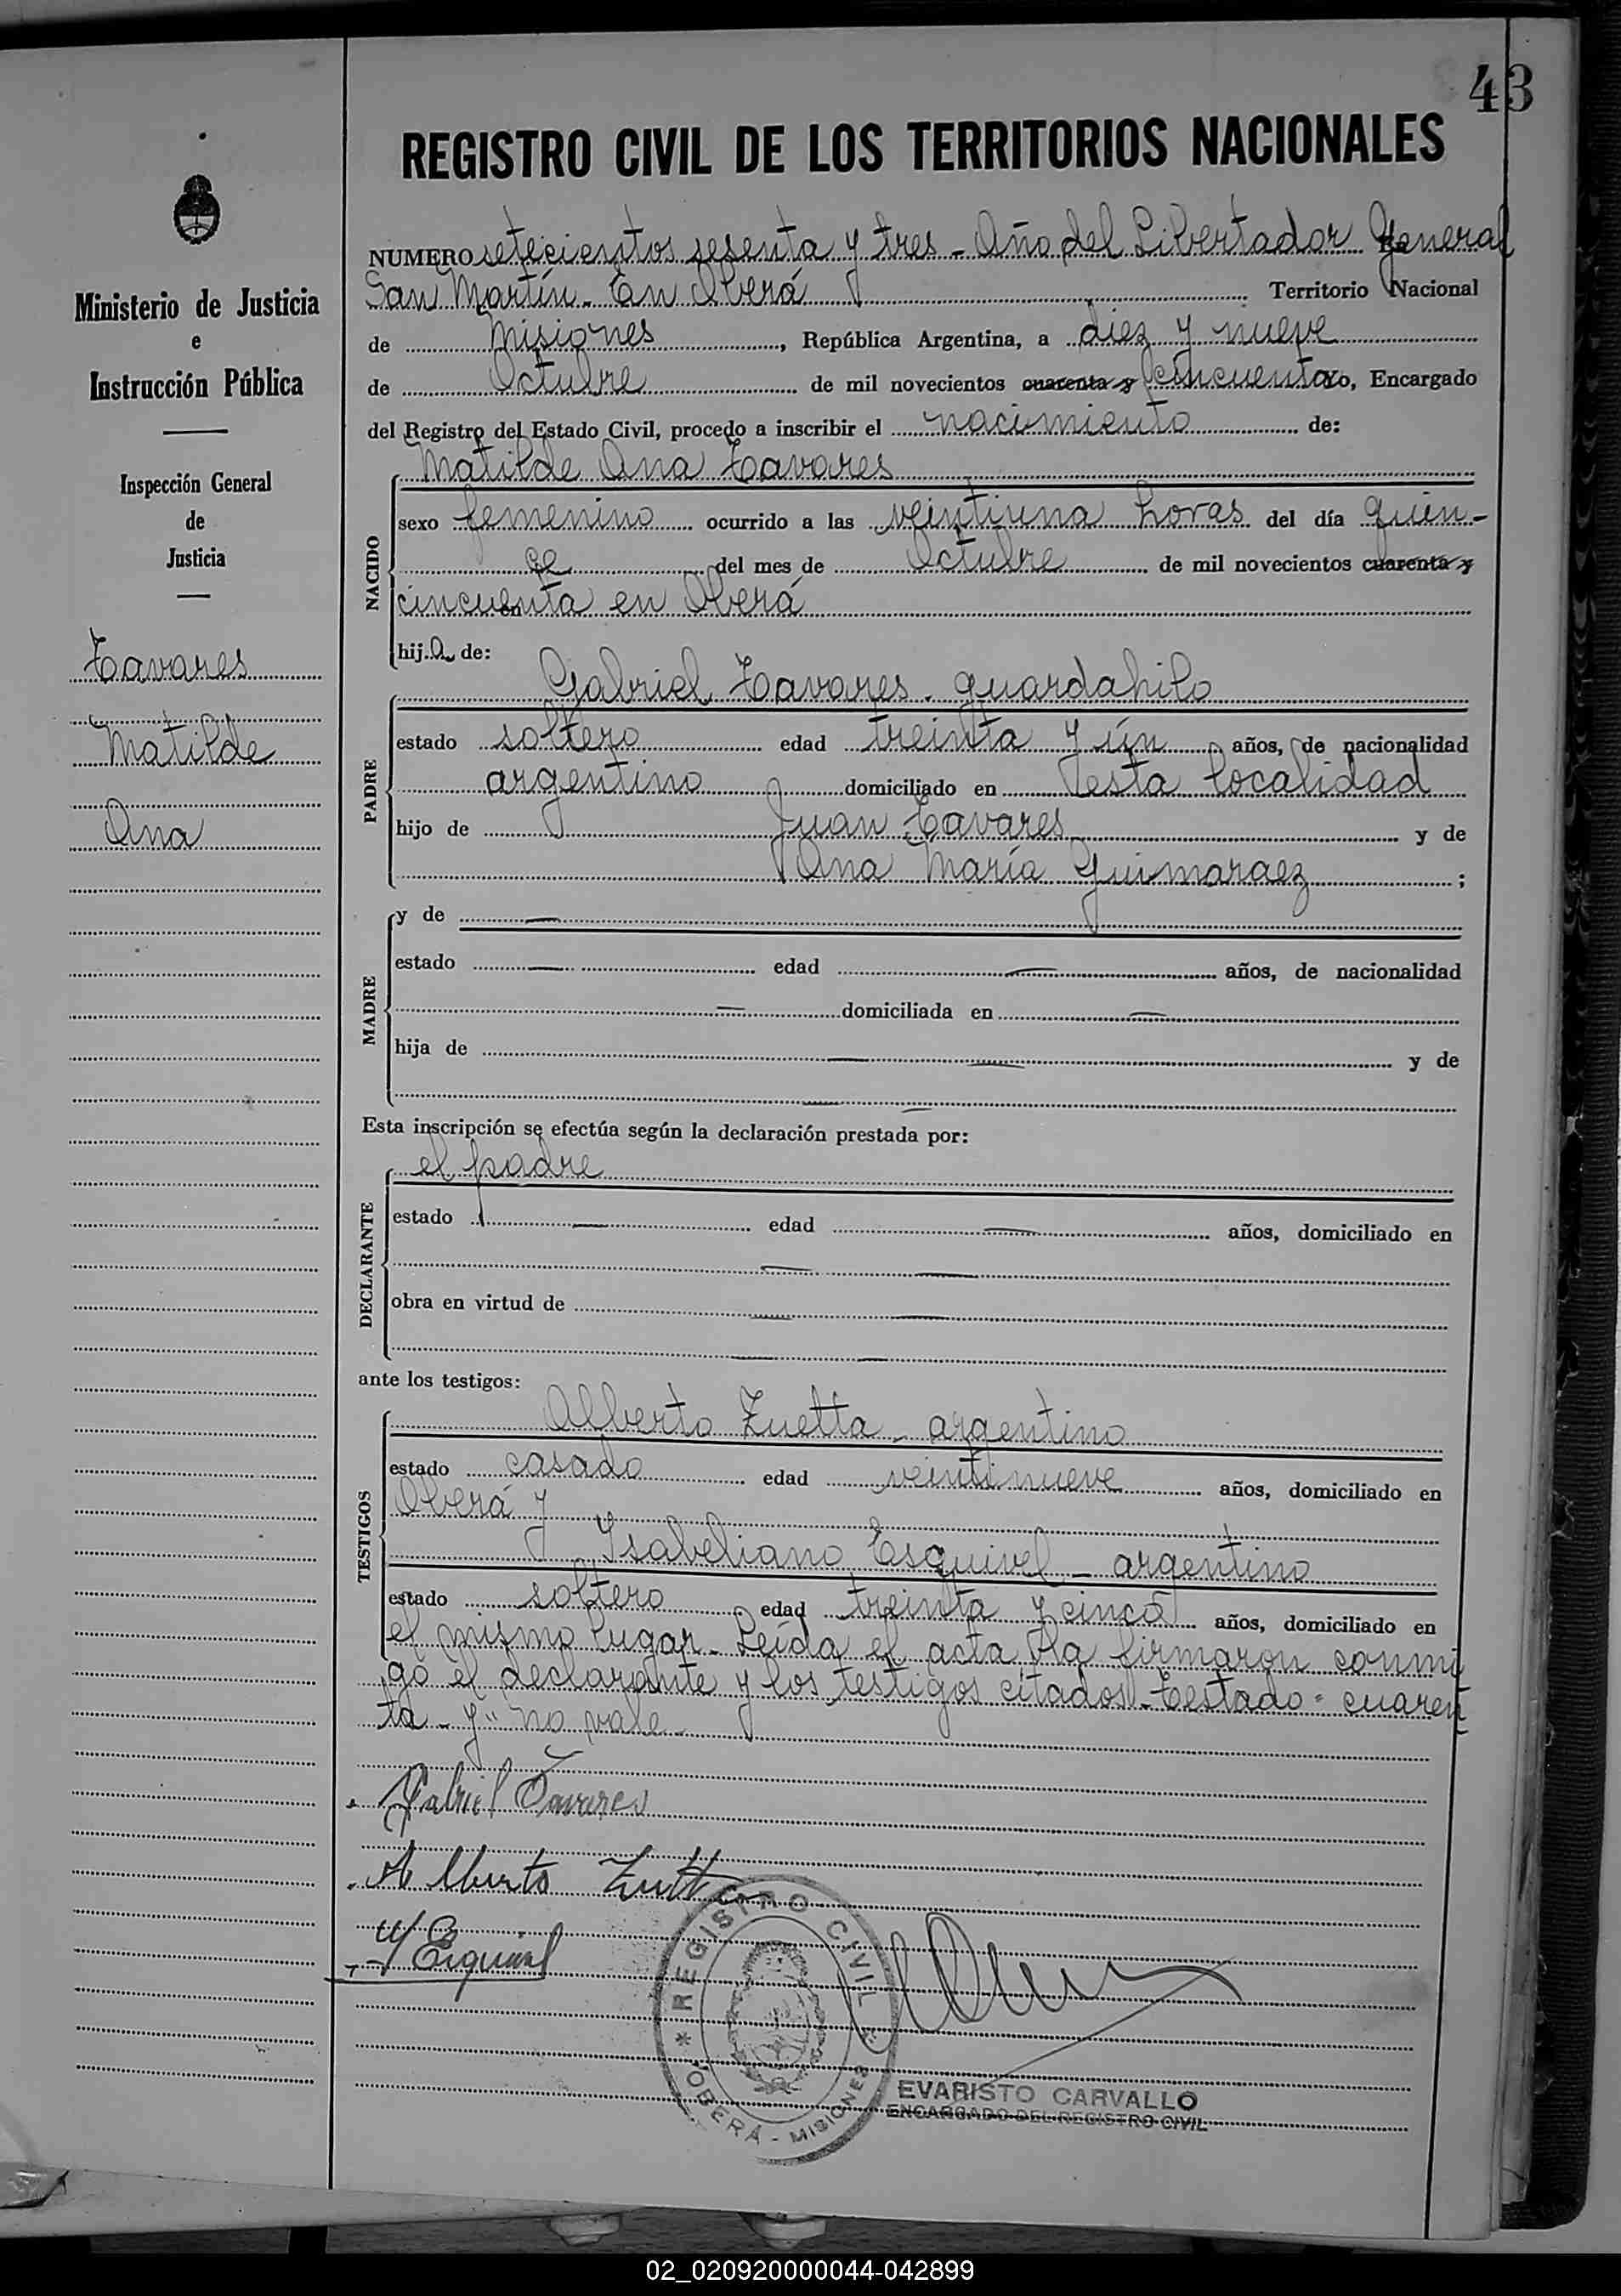 43
REGISTRO CIVIL DE LOS TERRITORIOS NACIONALES
Ministerio de Justicia
e
Instrucción Pública
Inspección General
de
Justicia
Tavares
Matilde
Ana
NUMERO setecientos sesenta y tres - Año del Libertador General
San Martín. En Oberá Territorio Nacional
de Misiones, República Argentina, a diez y nueve
de Octubre de mil novecientos cuarenta y cincuenta yo, Encargado
del Registro del Estado Civil, procedo a inscribir el nacimiento de:
Matilde Ana Tavares
NACIDO
sexo femenino ocurrido a las veintiuna horas del día quin-
ce del mes de Octubre de mil novecientos cuarenta y
cincuenta en Oberá
hija de:
Gabriel Tavares. guardahilo
PADRE
estado soltero edad treinta y ún años, de nacionalidad
argentino domiciliado en esta localidad
hijo de Juan Tavares y de
Ana María Guimaraez ;
MADRE
y de —
estado — edad — años, de nacionalidad
— domiciliada en —
hija de — y de
—
Esta inscripción se efectúa según la declaración prestada por:
el padre
DECLARANTE
estado — edad — años, domiciliado en
—
obra en virtud de —
—
ante los testigos:
Alberto Zuetta - argentino
TESTIGOS
estado casado edad veintinueve años, domiciliado en
Oberá y
Ysabeliano Esquivel - argentino
estado soltero edad treinta y cinco años, domiciliado en
el mismo lugar. Leída el acta la firmaron conmi
go el declarante y los testigos citados. Testado "cuaren
ta - y" no vale.
Gabriel Tavares
Alberto Zuetta
Y Esquivel
REGISTRO CIVIL
* OBERÁ - MISIONES *
EVARISTO CARVALLO
ENCARGADO DEL REGISTRO CIVIL
02_020920000044-042899